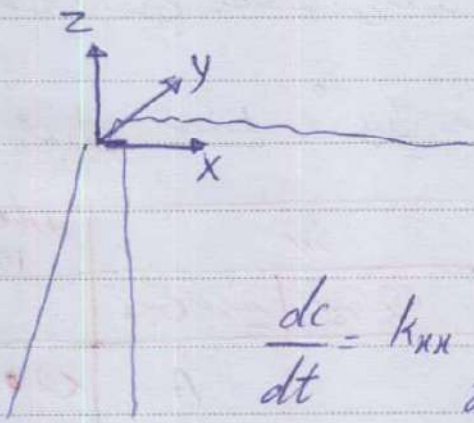 Z
y
x
dc/dt = k_xx